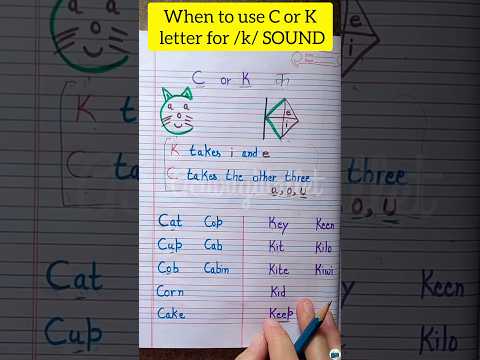 When to use C or K
letter for /k/ SOUND
C or K क
a a
o
u
e
i
K takes i and e
C takes the other three
a, o, u
Cat Cop Key Keen
Cup Cab Kit Kilo
Cob Cabin Kite Kiwi
Corn Kid
Cake Keep